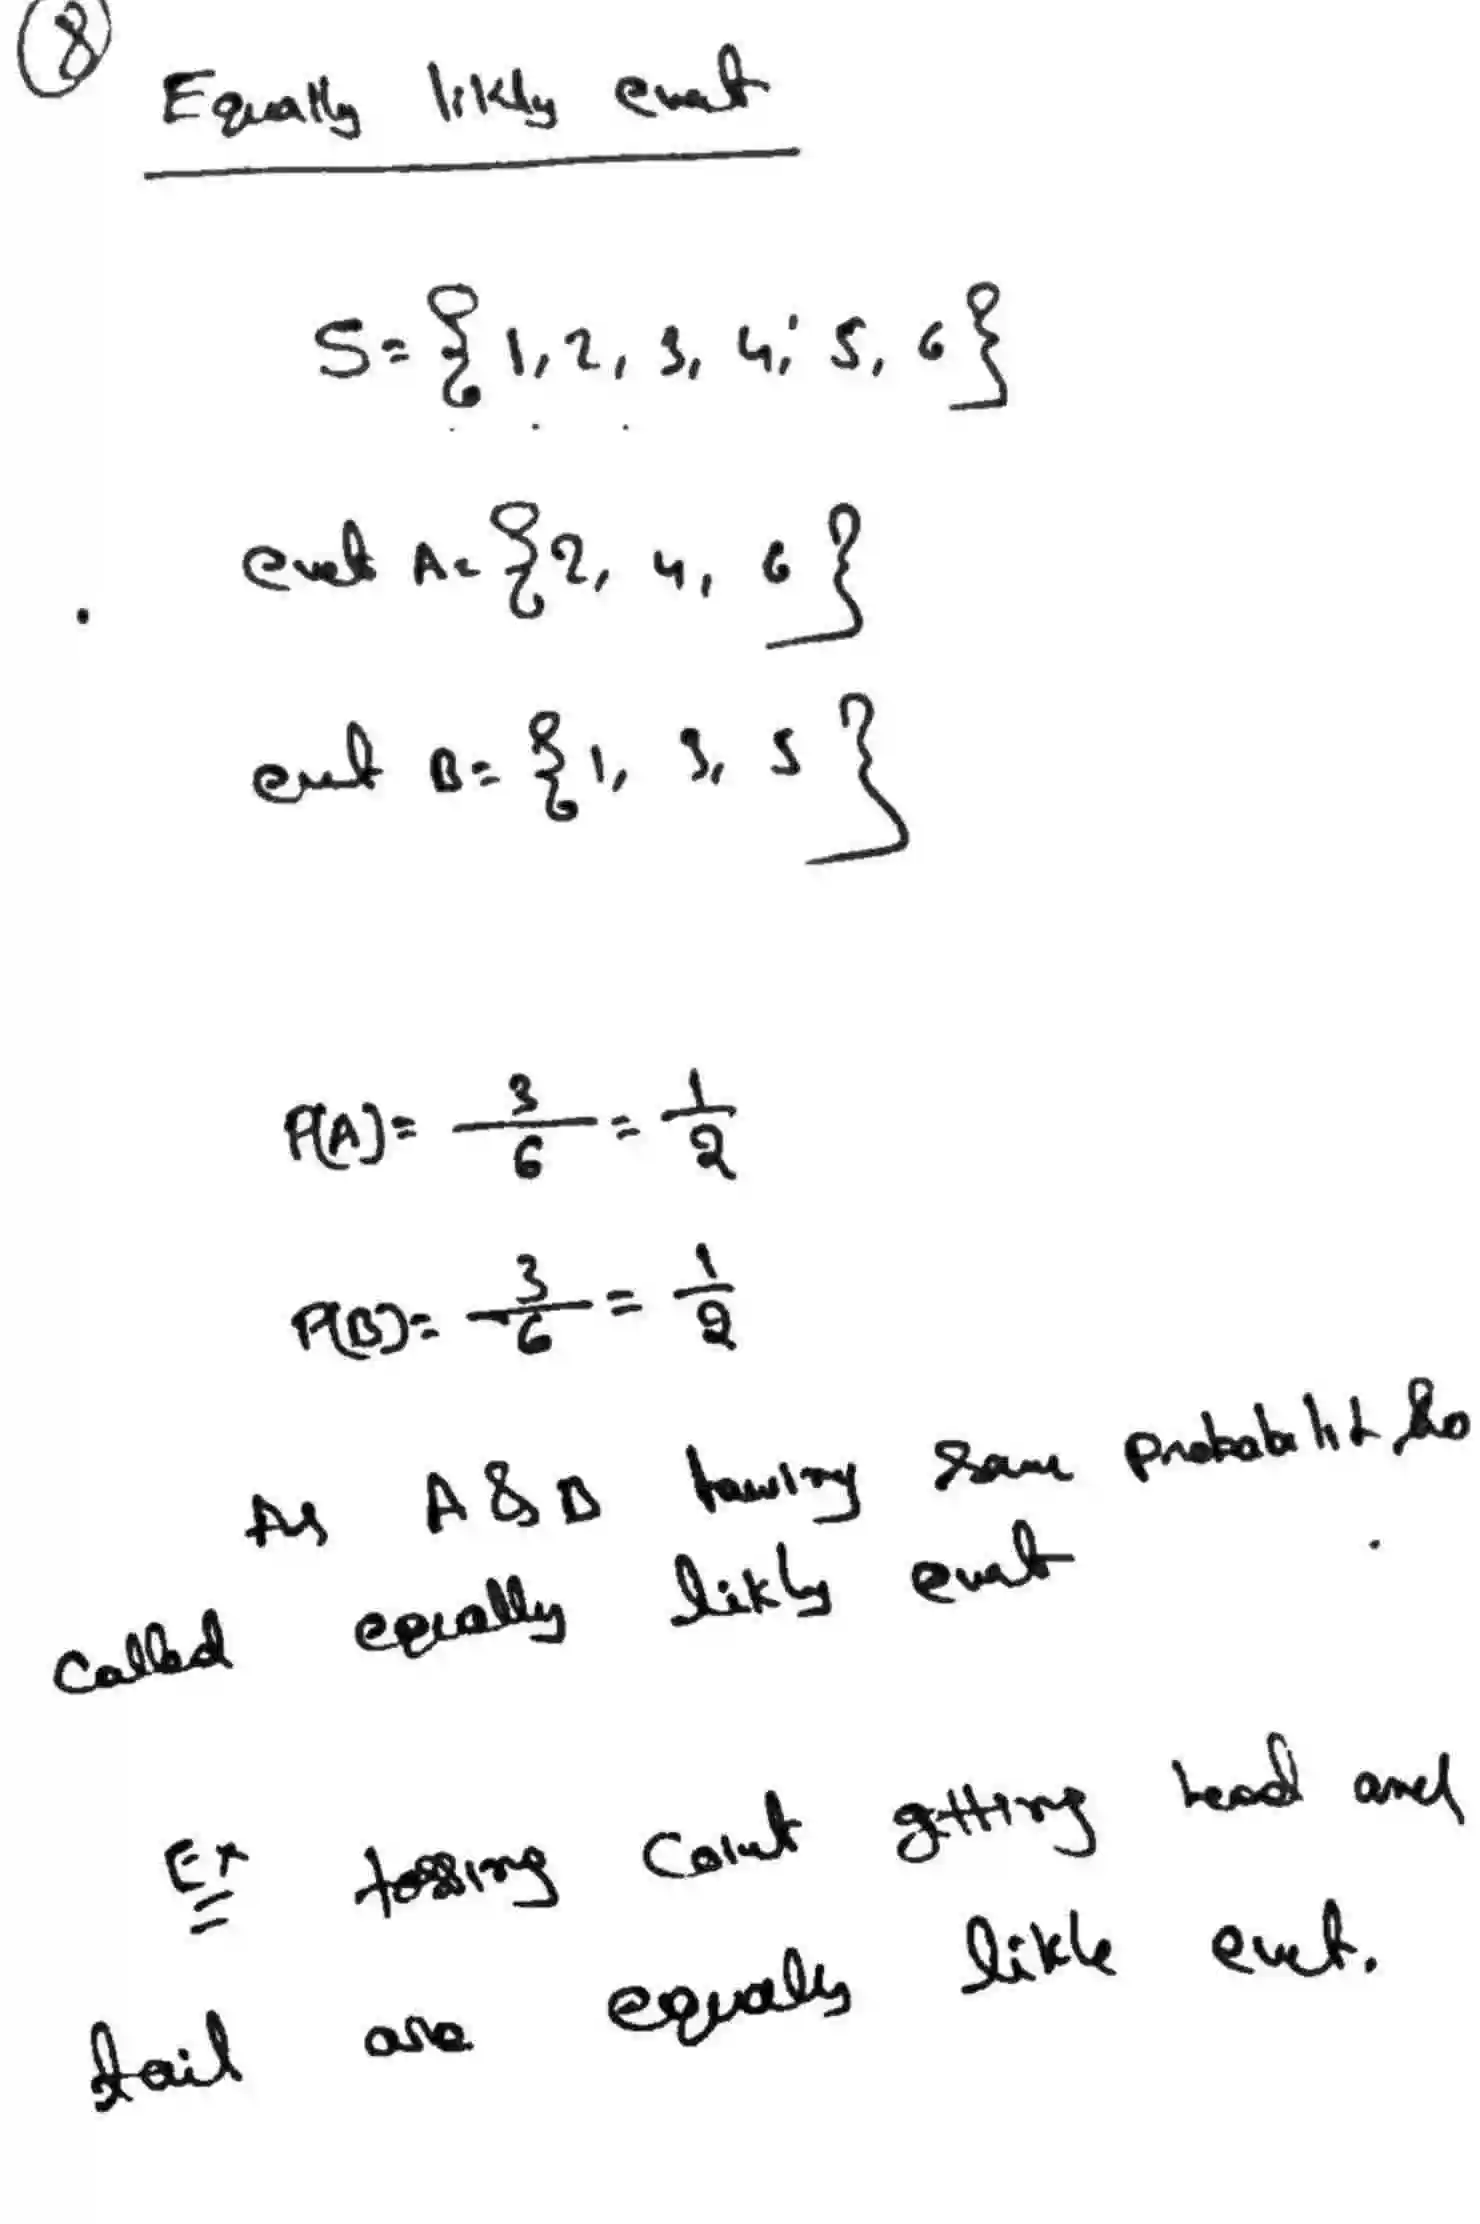 8
Equally likly event
S = { 1, 2, 3, 4, 5, 6 }
event A = { 2, 4, 6 }
event B = { 1, 3, 5 }
P(A) = 3/6 = 1/2
P(B) = 3/6 = 1/2
As A & B having same probabilit so
called equally likly event
Ex tossing Coint getting head and
tail are equaly likle event.